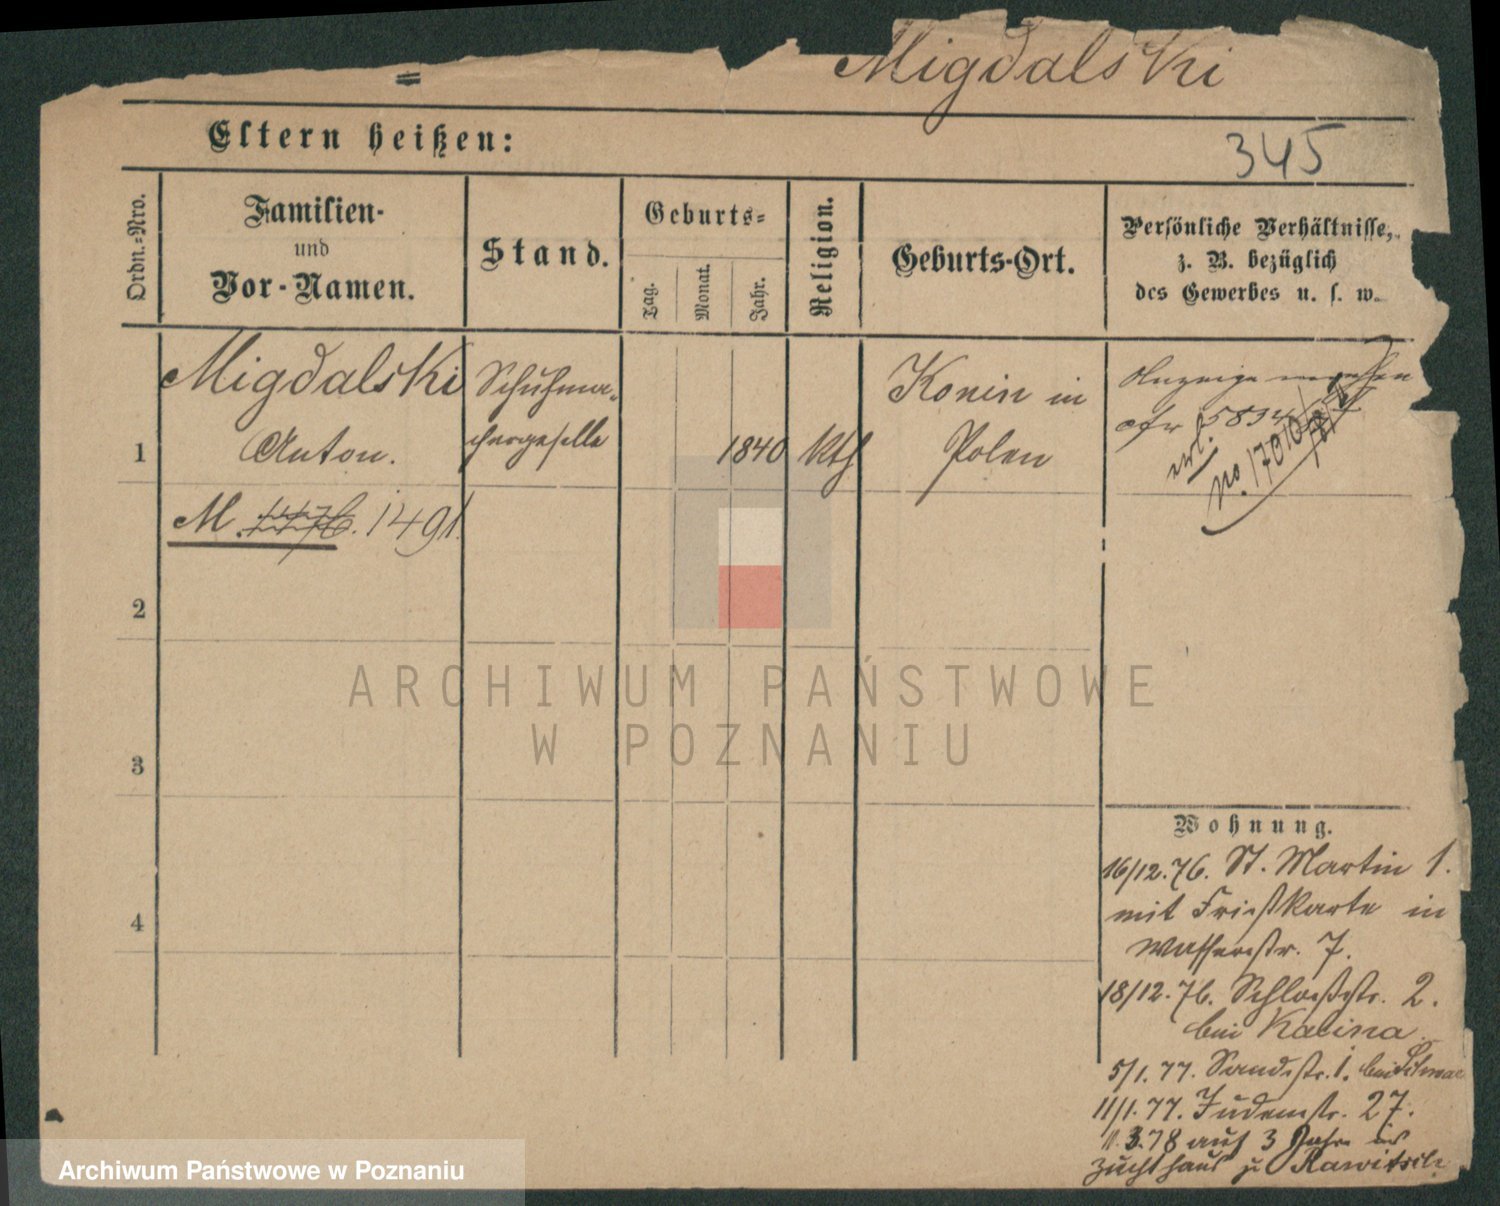 Migdalski
345
Eltern heißen:
Ordn.=Nro.
Familien-
und
Vor-Namen.
Stand.
Geburts-
Tag.
Monat.
Jahr.
Religion.
Geburts-Ort.
Persönliche Verhältnisse,
z. B. bezüglich
des Gewerbes u. s. w.
1
Migdalski
Anton.
Schuhma-
chergeselle
1840
kth
Konin in
Polen
Anzeige
5834
No. 17010
M. 1491.
2
3
4
Wohnung.
16/12.76. St. Martin 1.
mit in
Wasserstr. 7.
18/12.76. Schloßstr. 2.
bei Kalina
5/1.77. Sandstr. 1. bei
11/1.77. Judenstr. 27.
3.78 auf 3 Jahre ins
Zuchthaus zu Rawitsch
ARCHIWUM PAŃSTWOWE
W POZNANIU
Archiwum Państwowe w Poznaniu